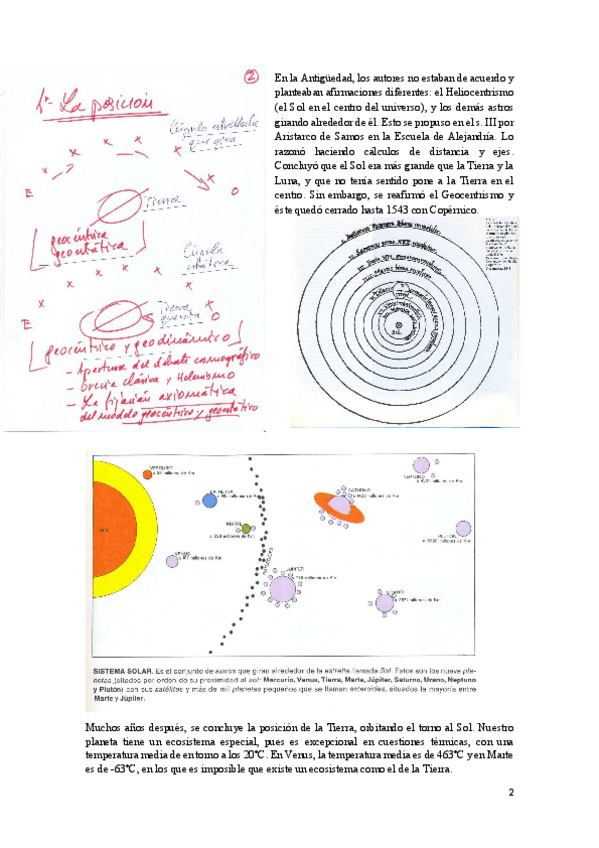 ②
1ª- La posición
Cúpula estrellada
que gira
E
O
Tierra
geocéntrica
geoestática
Cúpula
estática
E
O
Tierra
geocéntrico y geodinámico
- Apertura del debate cosmográfico
- Grecia clásica y Helenismo
- La fijación axiomática
del modelo geocéntrico y geoestático
En la Antigüedad, los autores no estaban de acuerdo y
planteaban afirmaciones diferentes: el Heliocentrismo
(el Sol en el centro del universo), y los demás astros
girando alrededor de él. Esto se propuso en el s. III por
Aristarco de Samos en la Escuela de Alejandría. Lo
razonó haciendo cálculos de distancia y ejes.
Concluyó que el Sol era más grande que la Tierra y la
Luna, y que no tenía sentido pone a la Tierra en el
centro. Sin embargo, se reafirmó el Geocentrismo y
éste quedó cerrado hasta 1543 con Copérnico.
Sol
MERCURIO
VENUS
LA TIERRA
MARTE
ASTEROIDES
JUPITER
SATURNO
URANO
NEPTUNO
PLUTON
SISTEMA SOLAR. Es el conjunto de astros que giran alrededor de la estrella llamada Sol. Estos son los nueve pla-
netas (citados por orden de su proximidad al sol: Mercurio, Venus, Tierra, Marte, Júpiter, Saturno, Urano, Neptuno
y Plutón) con sus satélites y más de mil planetas pequeños que se llaman asteroides, situados la mayoría entre
Marte y Júpiter.
Muchos años después, se concluye la posición de la Tierra, orbitando el torno al Sol. Nuestro
planeta tiene un ecosistema especial, pues es excepcional en cuestiones térmicas, con una
temperatura media de entorno a los 20°C. En Venus, la temperatura media es de 463°C y en Marte
es de -63°C, en los que es imposible que existe un ecosistema como el de la Tierra.
2